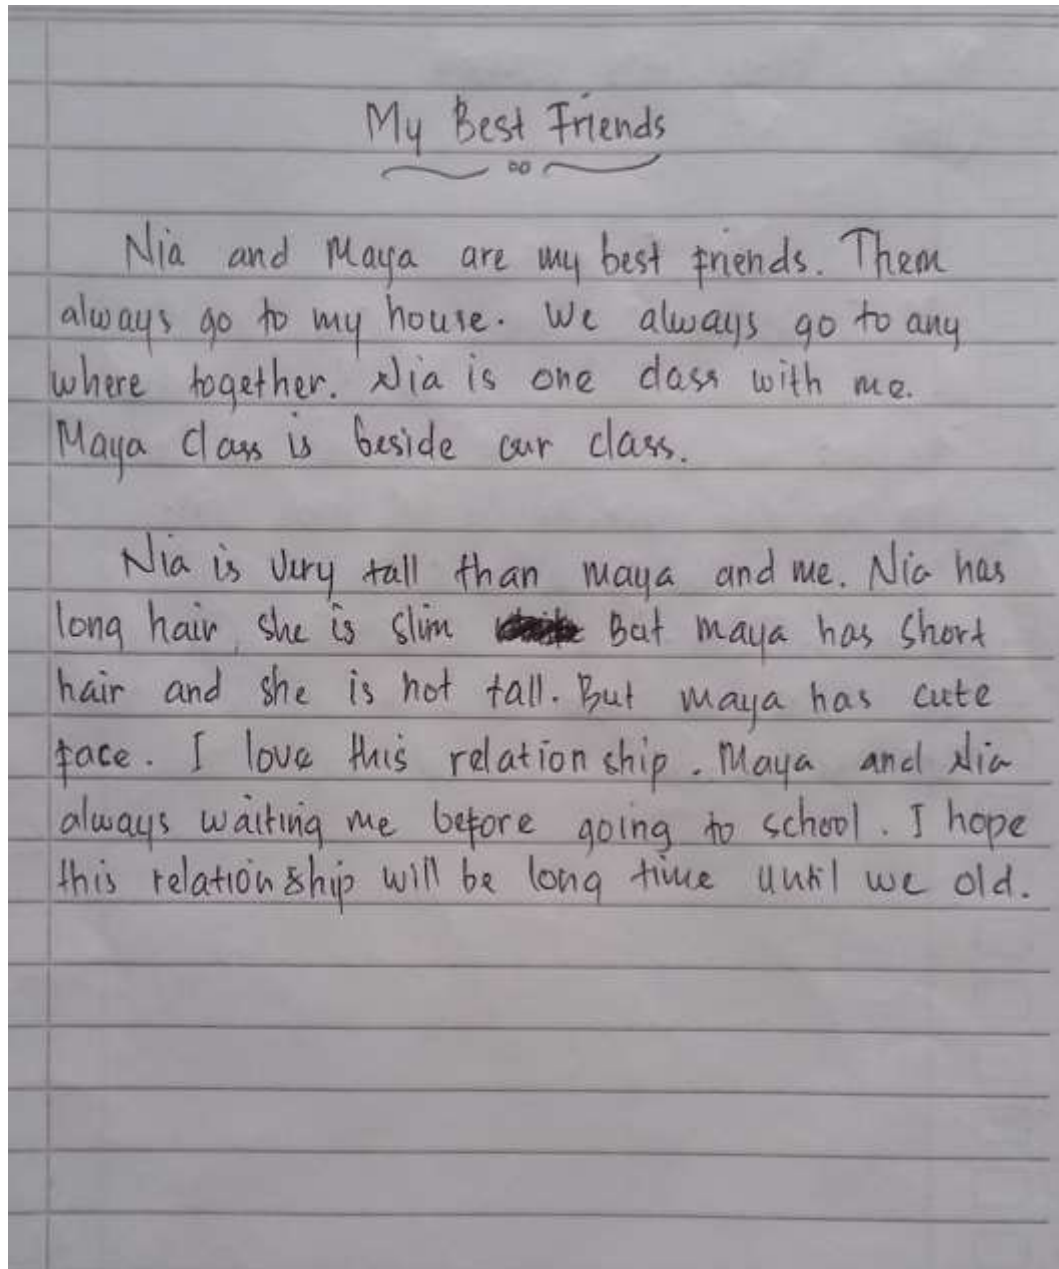 My Best Friends
Nia and Maya are my best friends. Them
always go to my house. We always go to any
where together. Nia is one class with me.
Maya class is beside our class.
Nia is very tall than maya and me. Nia has
long hair, she is slim But maya has short
hair and she is not tall. But maya has cute
face. I love this relation ship. Maya and Nia
always waiting me before going to school. I hope
this relation ship will be long time until we old.